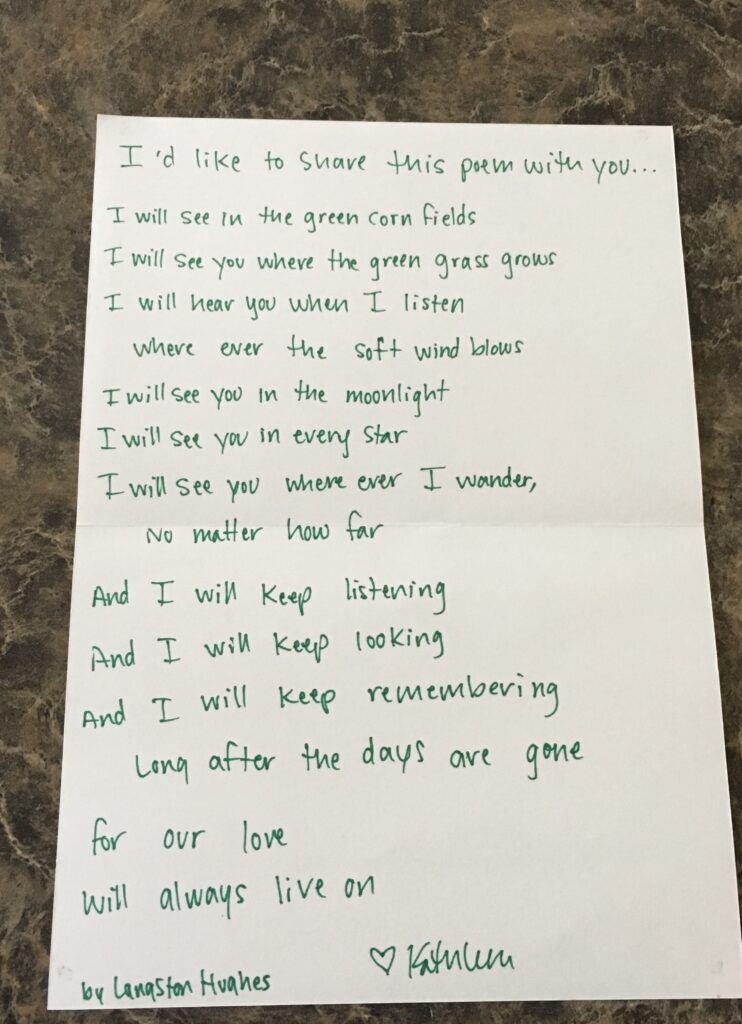 I'd like to share this poem with you...
I will see in the green corn fields
I will see you where the green grass grows
I will hear you when I listen
where ever the soft wind blows
I will see you in the moonlight
I will see you in every star
I will see you where ever I wander,
No matter how far
And I will keep listening
And I will keep looking
And I will keep remembering
Long after the days are gone
for our love
will always live on
♡ Kathleen
by Langston Hughes